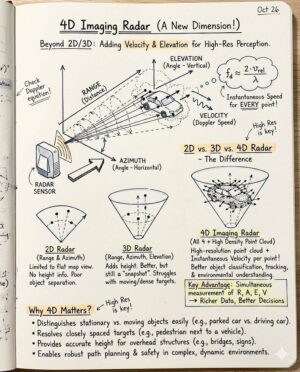 Oct 26
4D Imaging Radar (A New Dimension!)
Beyond 2D/3D: Adding Velocity & Elevation for High-Res Perception.
Check Doppler equation!
RANGE
(Distance)
ELEVATION
(Angle - Vertical)
VELOCITY
(Doppler Speed)
AZIMUTH
(Angle - Horizontal)
RADAR
SENSOR
f_d = 2·v_rel / λ
Instantaneous Speed
for EVERY point!
High Res
is key!
2D vs. 3D vs. 4D Radar
- The Difference
2D Radar
(Range & Azimuth)
Limited to flat map view.
No height info. Poor
object separation.
3D Radar
(Range, Azimuth, Elevation)
Adds height. Better, but
still a "snapshot". Struggles
with moving/dense targets.
4D Imaging Radar
(All 4 + High Density Point Cloud)
High-resolution point cloud +
Instantaneous Velocity per point!
Better object classification, tracking,
& environmental understanding.
Key Advantage: Simultaneous
measurement of R, A, E, V
→ Richer Data, Better Decisions
Why 4D Matters?
High Res
is key!
• Distinguishes stationary vs. moving objects easily (e.g., parked car vs. driving car).
• Resolves closely spaced targets (e.g., pedestrian next to a vehicle).
• Provides accurate height for overhead structures (e.g., bridges, signs).
• Enables robust path planning & safety in complex, dynamic environments.